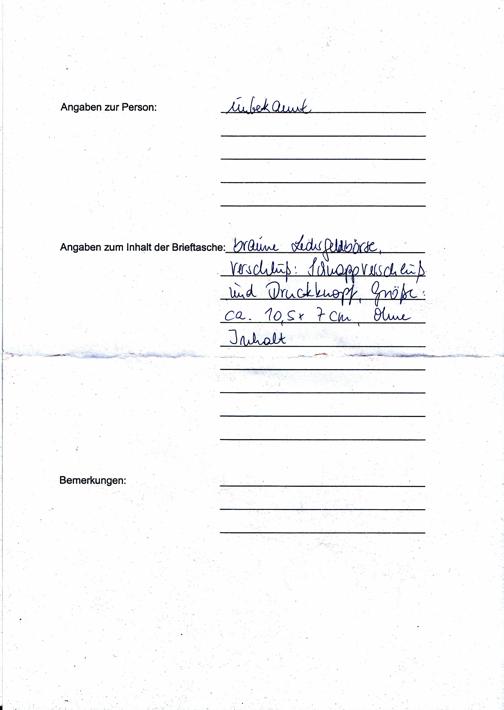 Angaben zur Person: unbekannt
Angaben zum Inhalt der Brieftasche: braune Ledergeldbörse,
Verschluß: Schnappverschluß
und Druckknopf, Größe:
ca. 10,5 x 7 cm, ohne
Inhalt
Bemerkungen: